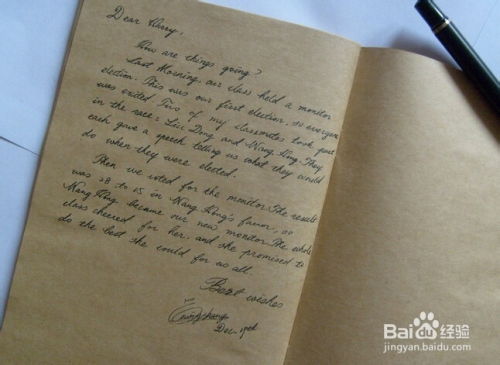 Dear Harry,
How are things going?
Last Morning, our class held a monitor
election. This was our first election, so everyone
was exited Two of my classmates took part
in the race: Liu Ding and Wang Ping. They
each give a speech telling us what they would
do when they were elected.
Then we voted for the monitor. The result
was 28 to 15 in Wang Ping's favor, so
Wang Ping became our new monitor. The whole
class cheered for her, and she promised to
do the best she could for us all.
Best wishes
Dec.
Baidu 经验
jingyan.baidu.com